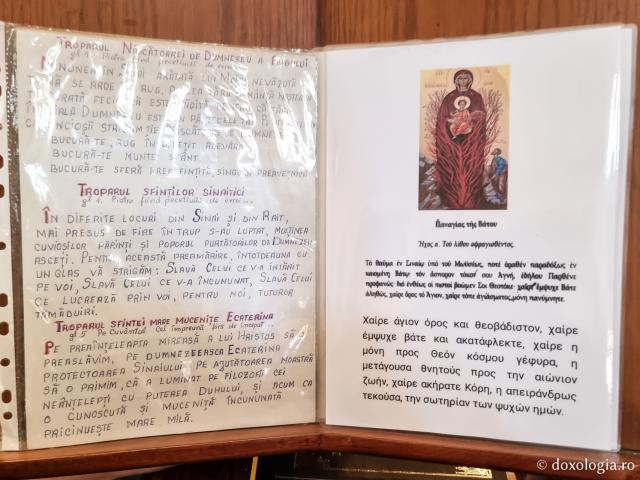 TROPARUL NĂSCĂTOAREI DE DUMNEZEU A RUGULUI
gl 1. Piatra fiind pecetluită de evrei
MINUNEA ARĂTATĂ LUI MOISE NEVĂZUTĂ
SE ARDE RUG,
DUMNEZEU
STRIGĂM ȚIE NĂSCĂTOARE DE DUMNE
BUCURĂ-TE, RUG ÎNSUFLEȚIT
BUCURĂ-TE MUNTE SFÂNT
BUCURĂ-TE SFERĂ PREASFINȚITĂ, SINGURĂ PREAVENICĂ
TROPARUL SFINȚILOR SINAITICI
gl 1. Piatra fiind pecetluită de evrei
ÎN DIFERITE LOCURI DIN SINAI ȘI DIN RAIT,
MAI PRESUS DE FIRE ÎN TRUP S-AU LUPTAT, MULȚIMEA
CUVIOȘILOR PĂRINȚI ȘI POPORUL PURTĂTORILOR DE DUMNEZEU
ASCEȚI. PENTRU ACEASTĂ PREAMĂRIRE, ÎNTOTDEAUNA CU
UN GLAS VĂ STRIGĂM: SLAVĂ CELUI CE V-A ÎNTĂRIT
PE VOI, SLAVĂ CELUI CE V-A ÎNCUNUNAT, SLAVĂ CELUI
CE LUCREAZĂ PRIN VOI, PENTRU NOI, TUTUROR
TĂMĂDUIRI.
TROPARUL SFINTEI MARE MUCENIȚE ECATERINA
gl 5 Pe Cuvântul Cel împreună fără de început
PE PREAÎNȚELEAPTA MIREASĂ A LUI HRISTOS SĂ O
PREASLĂVIM, PE DUMNEZEEASCA ECATERINA
PROTECTOAREA SINAIULUI PE AJUTĂTOAREA NOASTRĂ
SĂ O PRIMIM, CĂ A LUMINAT PE FILOZOFII CEI
NEÎNȚELEPȚI CU PUTEREA DUHULUI, ȘI ACUM CA
O CUNOSCUTĂ ȘI MUCENIȚĂ ÎNCUNUNATĂ
PRICINUEȘTE MARE MILĂ.
Παναγίας τῆς Βάτου
Ἦχος α. Τοῦ λίθου σφραγισθέντος.
Τὸ θαῦμα ἐν Σιναίῳ ὑπὸ τοῦ Μωϋσέως, ποτὲ ὁραθὲν παραδόξως ἐν
καιομένῃ Βάτῳ· τὸν ἄσπορον τόκον σου Ἁγνή, ἐδήλου Παρθένε
προφανῶς· διὸ ἐνθέως οἱ πιστοὶ βοῶμεν Σοι Θεοτόκε· χαῖρε ἔμψυχε Βάτε
ἀληθῶς, χαῖρε ὄρος τὸ Ἅγιον, χαῖρε τόπε ἁγιάσματος, μόνη πανύμνητε.
Χαίρε άγιον όρος και θεοβάδιστον, χαίρε
έμψυχε βάτε και ακατάφλεκτε, χαίρε η
μόνη προς Θεόν κόσμου γέφυρα, η
μετάγουσα θνητούς προς την αιώνιον
ζωήν, χαίρε ακήρατε Κόρη, η απειράνδρως
τεκούσα, την σωτηρίαν των ψυχών ημών.
© doxologia.ro